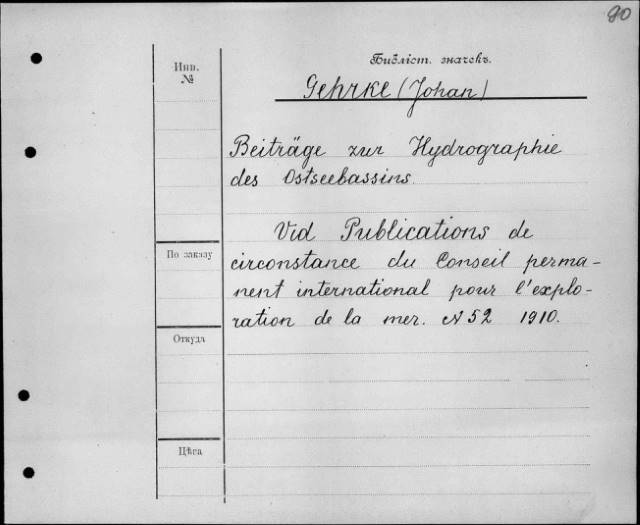 90
Библіот. значекъ.
Инв.
№
Gehrke (Johan)
Beiträge zur Hydrographie
des Ostseebassins.
Vid Publications de
circonstance du Conseil perma-
По заказу
nent international pour l'explo-
ration de la mer. N 52 1910.
Откуда
Цѣна